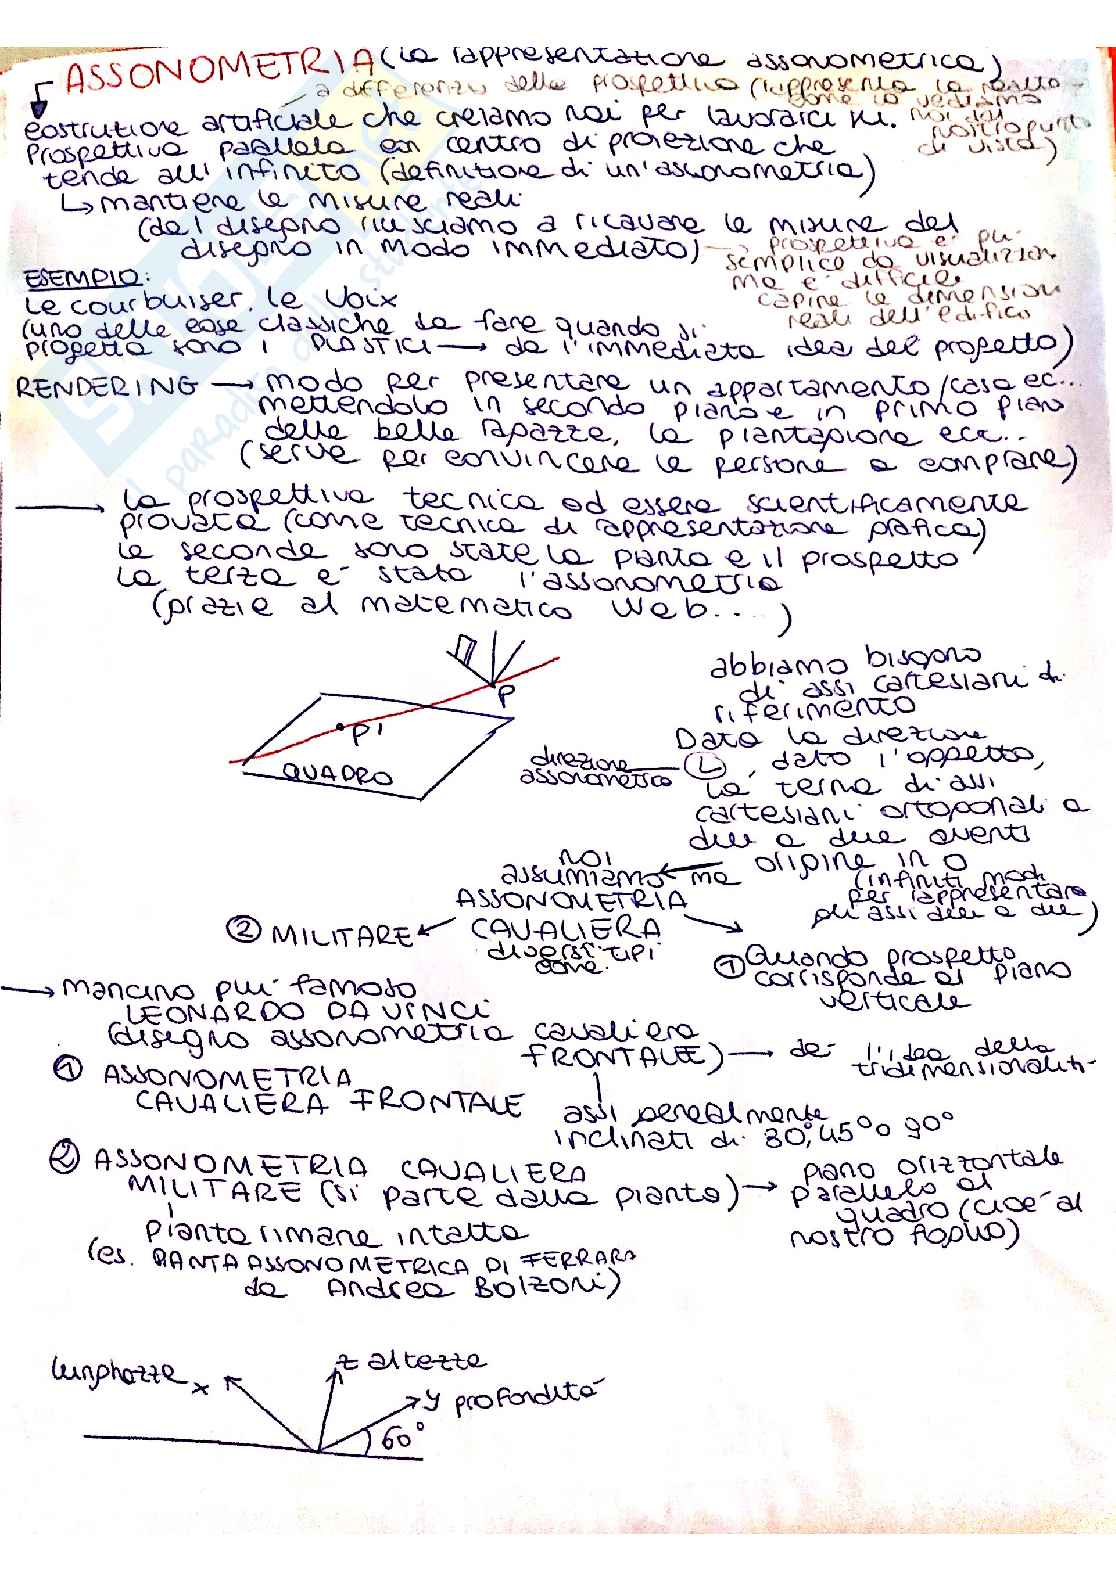 ASSONOMETRIA (la rappresentazione assonometrica)
a differenza della prospettiva (rappresenta la realtà
come la vediamo
noi dal
nostro punto
di vista)
costruzione artificiale che creiamo noi per lavorarci su.
Prospettiva parallela con centro di proiezione che
tende all'infinito (definizione di un'assonometria)
↳ mantiene le misure reali
(dal disegno riusciamo a ricavare le misure del
disegno in modo immediato)
→ prospettiva è più
semplice da visualizzare
ma è difficile
capire le dimensioni
reali dell'edificio
ESEMPIO:
Le courbuiser, le Voix
(uno delle cose classiche da fare quando si
progetta sono i PLASTICI → da l'immediata idea del progetto)
RENDERING → modo per presentare un appartamento/casa ec...
mettendolo in secondo piano e in primo piano
delle belle ragazze, la piantagione ecc...
(serve per convincere le persone a comprare)
→ la prospettiva tecnica ad essere scientificamente
provata (come tecnica di rappresentazione grafica)
le seconde sono state la pianta e il prospetto
la terza è stata l'assonometria
(grazie al matematico Web...)
P
P'
QUADRO
abbiamo bisogno
di assi cartesiani di
riferimento
Data la direzione
direzione
assonometrica
L, dato l'oggetto,
la terna di assi
cartesiani ortogonali a
due a due aventi
origine in O
(infiniti modi
per rappresentare
gli assi due a due)
noi
assumiamo ← ma
ASSONOMETRIA
CAVALIERA
diversi tipi
come:
② MILITARE
① Quando prospetto
corrisponde al piano
verticale
→ mancino più famoso
LEONARDO DA VINCI
(disegno assonometria cavaliera
FRONTALE) → da l'idea della
tridimensionalità
① ASSONOMETRIA
CAVALIERA FRONTALE
assi generalmente
inclinati di 30°, 45° o 90°
② ASSONOMETRIA CAVALIERA
MILITARE (si parte dalla pianta) →
piano orizzontale
parallelo al
quadro (cioè al
nostro foglio)
pianta rimane intatta
(es. PIANTA ASSONOMETRICA DI FERRARA
da Andrea Bolzoni)
lunghezze x
z altezze
y profondità
60°